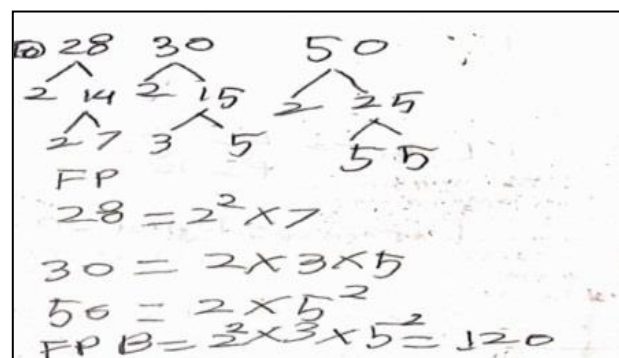 28 30 50
2 14 2 15 2 25
2 7 3 5 5 5
FP
28 = 2² × 7
30 = 2 × 3 × 5
50 = 2 × 5²
FPB = 2² × 3 × 5² = 120